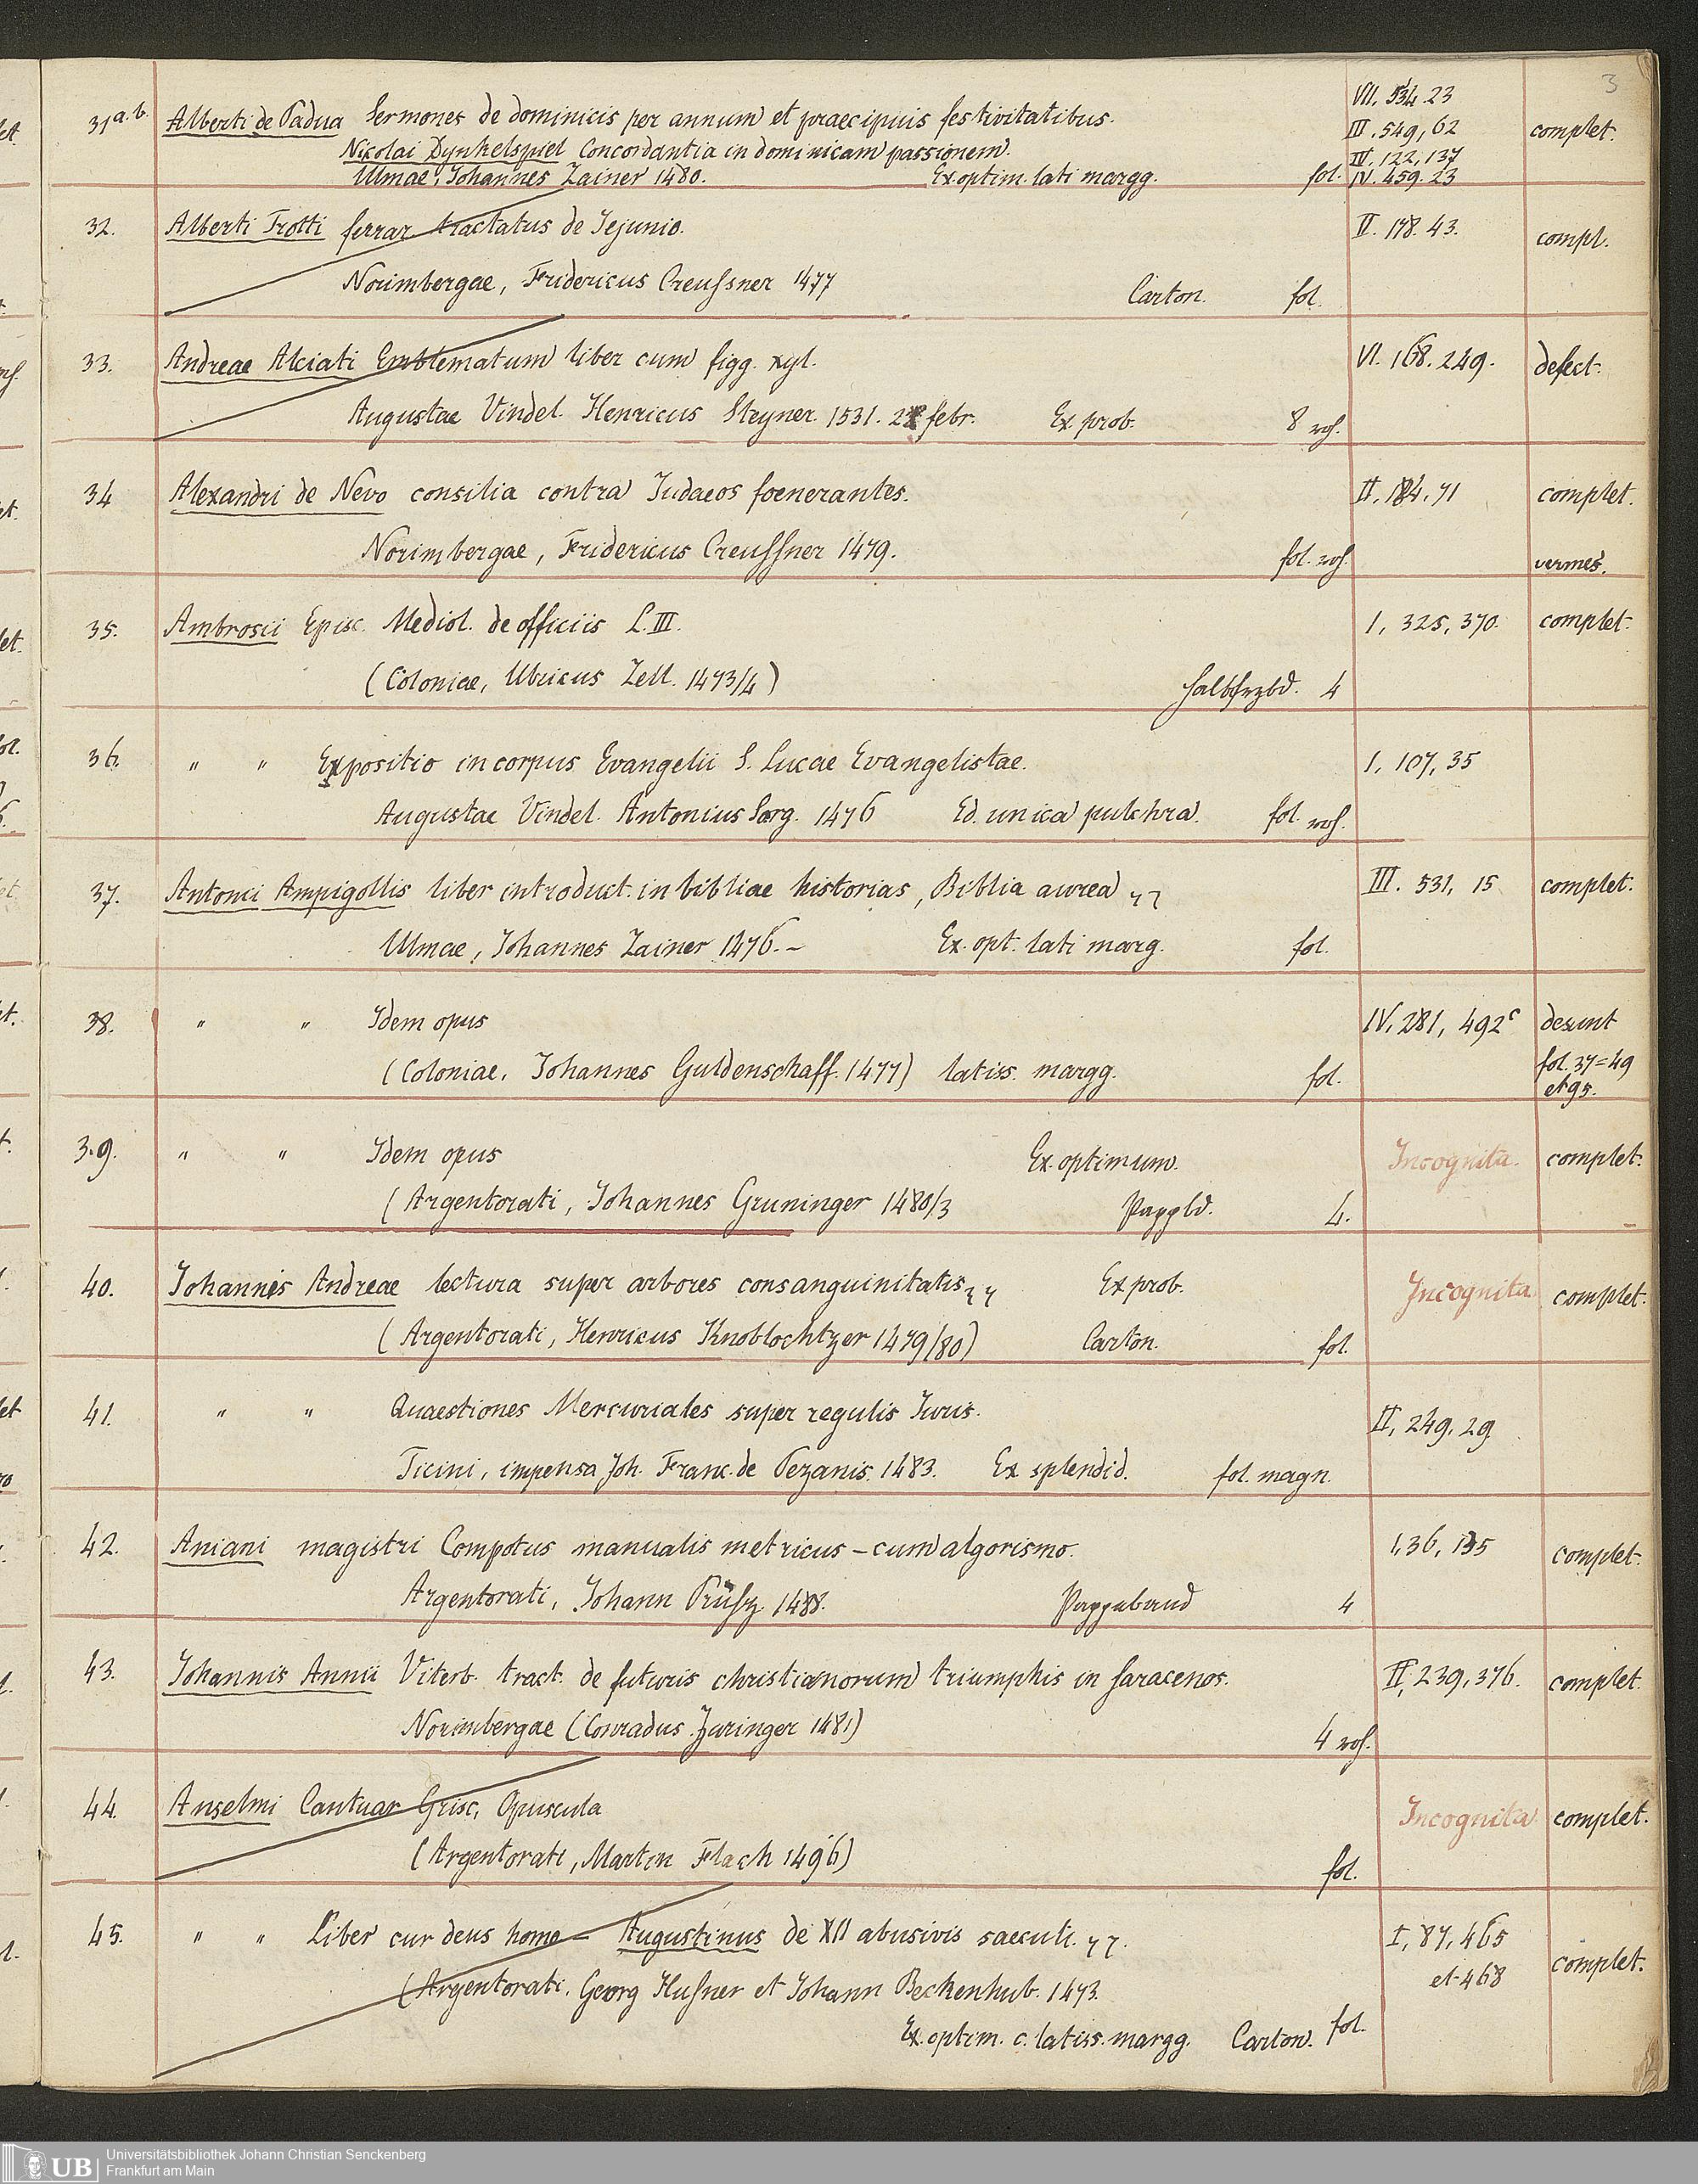 3
31a.b. Alberti de Padua Sermones de dominicis per annum et praecipuis festivitatibus. VII. 534. 23
III. 549, 62 complet.
Nicolai Dynkelspuel Concordantia in dominicam passionem. IV. 122, 137
Ulmae, Johannes Zainer 1480. Ex. optim. lati margg. fol. IV. 459. 23
32. Alberti Trotti ferrar tractatus de Jejunio. II. 178. 43. compl.
Norimbergae, Fridericus Creufsner 1477 Carton. fol.
33. Andreae Alciati Emblematum liber cum figg. xyl. VI. 168. 249. defect.
Augustae Vindel. Henricus Steyner. 1531. febr. Ex prob. 8 roh.
34 Alexandri de Nevo consilia contra Judaeos foenerantes. II. 184. 71 complet.
Norimbergae, Fridericus Creufsner 1479. fol. roh. vermes.
35. Ambrosii Episc. Mediol. de officiis L. III. I, 325, 370. complet.
(Coloniae, Ulricus Zell. 1473/4) Halbfrzbd. 4
36. " " Expositio in corpus Evangelii S. Lucae Evangelistae. I, 107, 35
Augustae Vindel. Antonius Sorg. 1476 Ed. unica pulchra. fol. roh.
37. Antonii Ampigollis liber introduct. in bibliae historias, Biblia aurea III. 531, 15 complet.
Ulmae, Johannes Zainer 1476. – Ex. opt. lati marg. fol.
38. " " Idem opus IV, 281, 492c desunt
(Coloniae, Johannes Guldenschaff. 1477) latiss. margg. fol. fol. 37=49
et 95.
39. " " Idem opus Ex. optimum. Incognita. complet.
(Argentorati, Johannes Gruninger 1480/3 Pappbd. 4.
40. Johannis Andreae lectura super arbores consanguinitatis Ex prob. Incognita complet.
(Argentorati, Henricus Knoblochtzer 1479/80) Carton. fol.
41. " " Quaestiones Mercuriales super regulis Juris. II, 249. 29.
Ticini, impensa Joh. Franc. de Pezanis. 1483. Ex splendid. fol. magn.
42. Aniani magistri Compotus manualis metricus – cum algorismo. I, 36, complet.
Argentorati, Johann Prüfz. 1488. Pappeband 4
43. Johannis Annii Viterb. tract. de futuris christianorum triumphis in Saracenos. II, 239, 376. complet.
Norimbergae (Conradus Zuringer 1481) 4 roh.
44. Anselmi Cantuar Opuscula Incognita complet.
(Argentorati, Martin Flach 1496) fol.
45. " " Liber cur deus homo – Augustinus de XII abusivis saeculi. I, 87, 465
et 468 complet.
(Argentorati. Georg Hufner et Johann Beckenhub. 1473.
Ex. optim. c. latiss. margg. Carton. fol.
UB Universitätsbibliothek Johann Christian Senckenberg
Frankfurt am Main